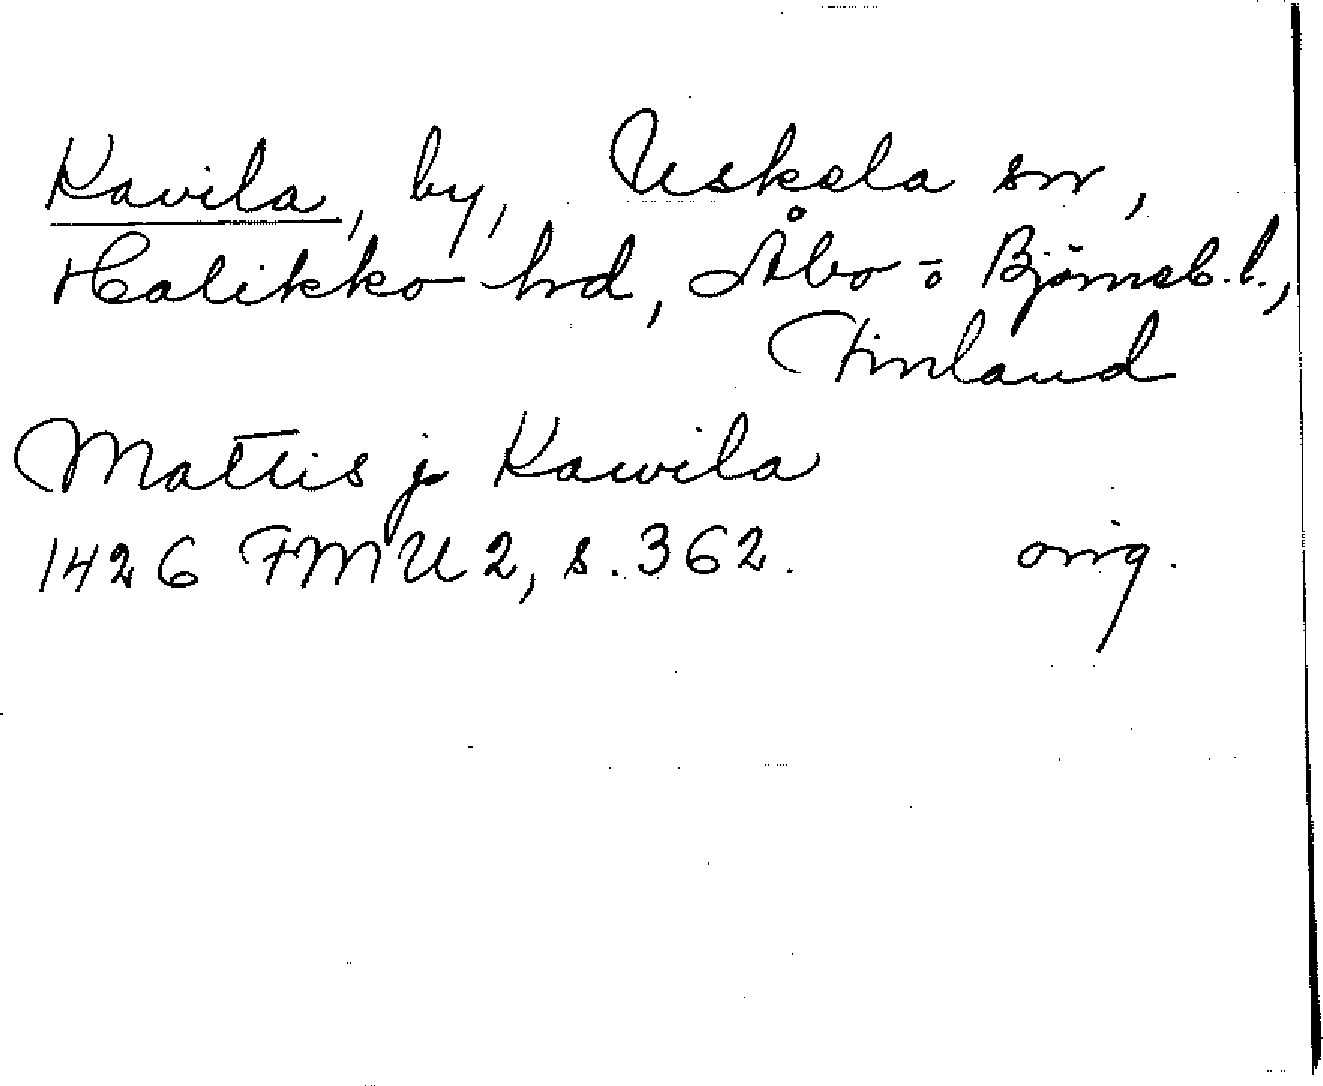 Kavila, by, Uskela sn,
Halikko hd, Åbo o Björneb. l.,
Finland
Mattis j Kawila
1426 FMU 2, s. 362. orig.